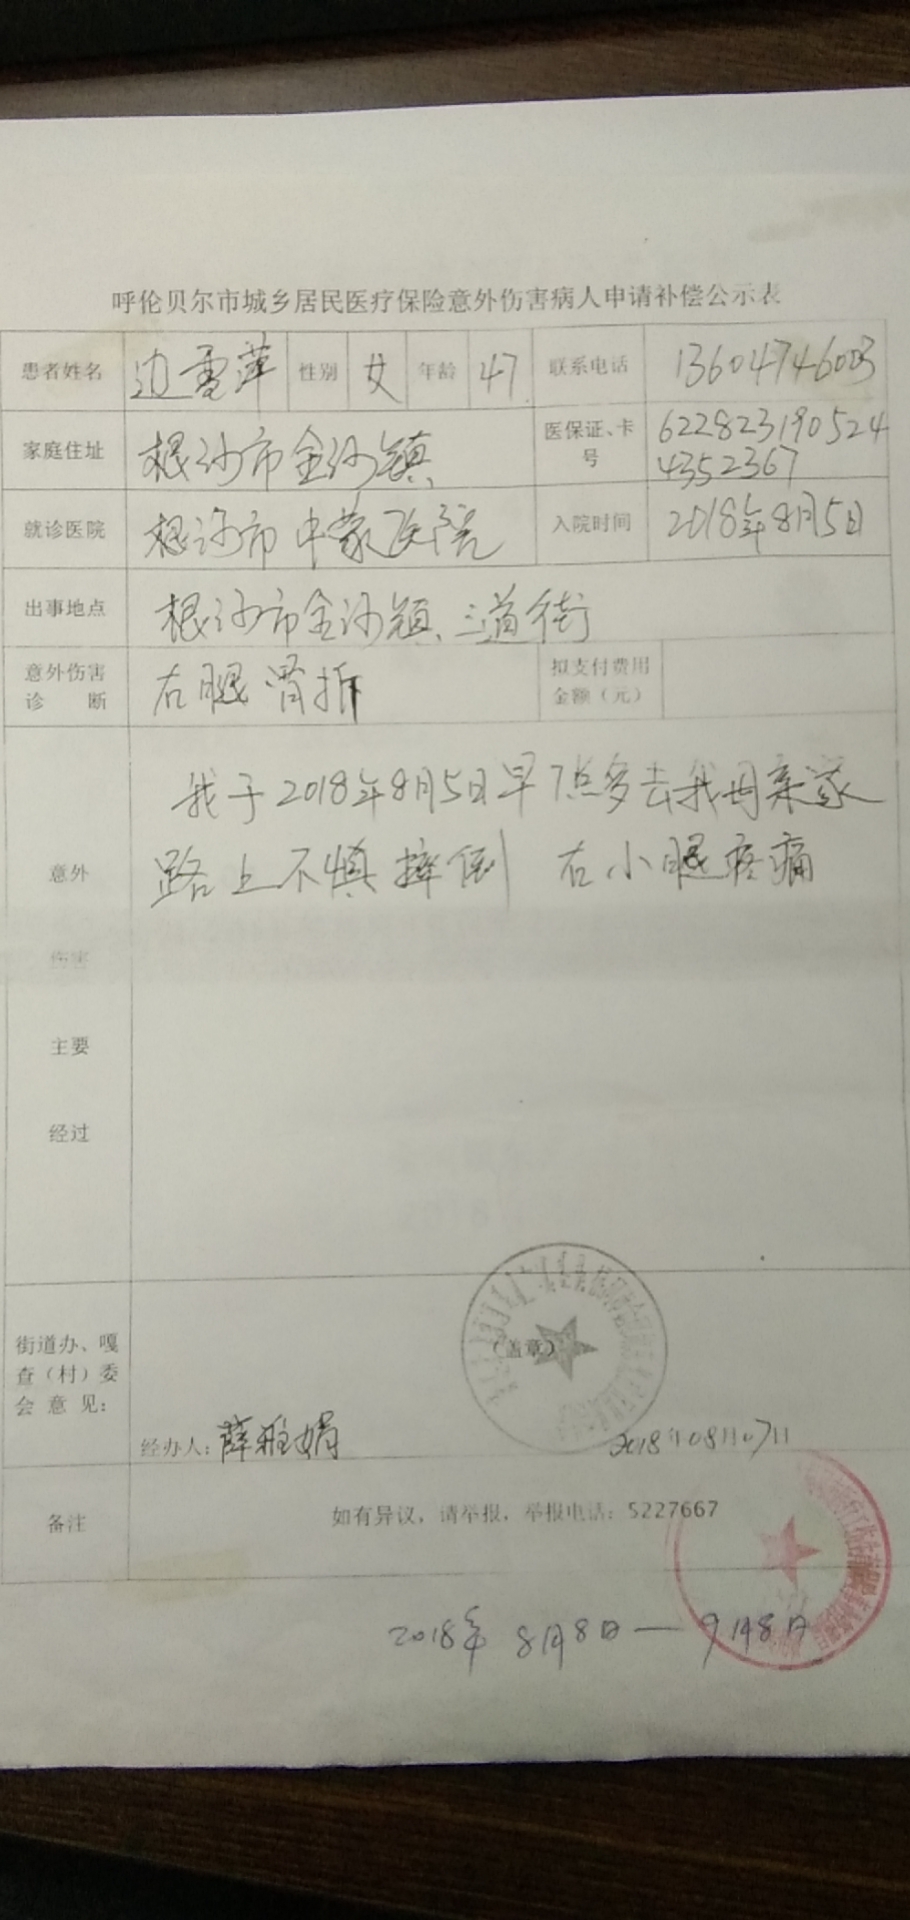 呼伦贝尔市城乡居民医疗保险意外伤害病人申请补偿公示表
患者姓名 边雪萍 性别 女 年龄 47 联系电话 13604746003
家庭住址 根河市金河镇 医保证、卡号 622823190524
4352367
就诊医院 根河市中蒙医院 入院时间 2018年8月5日
出事地点 根河市金河镇、三道街
意外伤害 右腿骨折 拟支付费用
诊 断 金额（元）
我于2018年8月5日早7点多去我母亲家
意外 路上不慎摔倒 右小腿疼痛
伤害
主要
经过
街道办、嘎
查（村）委 （盖章）
会 意 见：
经办人：薛雅娟 2018年08月07日
备注 如有异议，请举报，举报电话：5227667
2018年 8月8日—9月8日